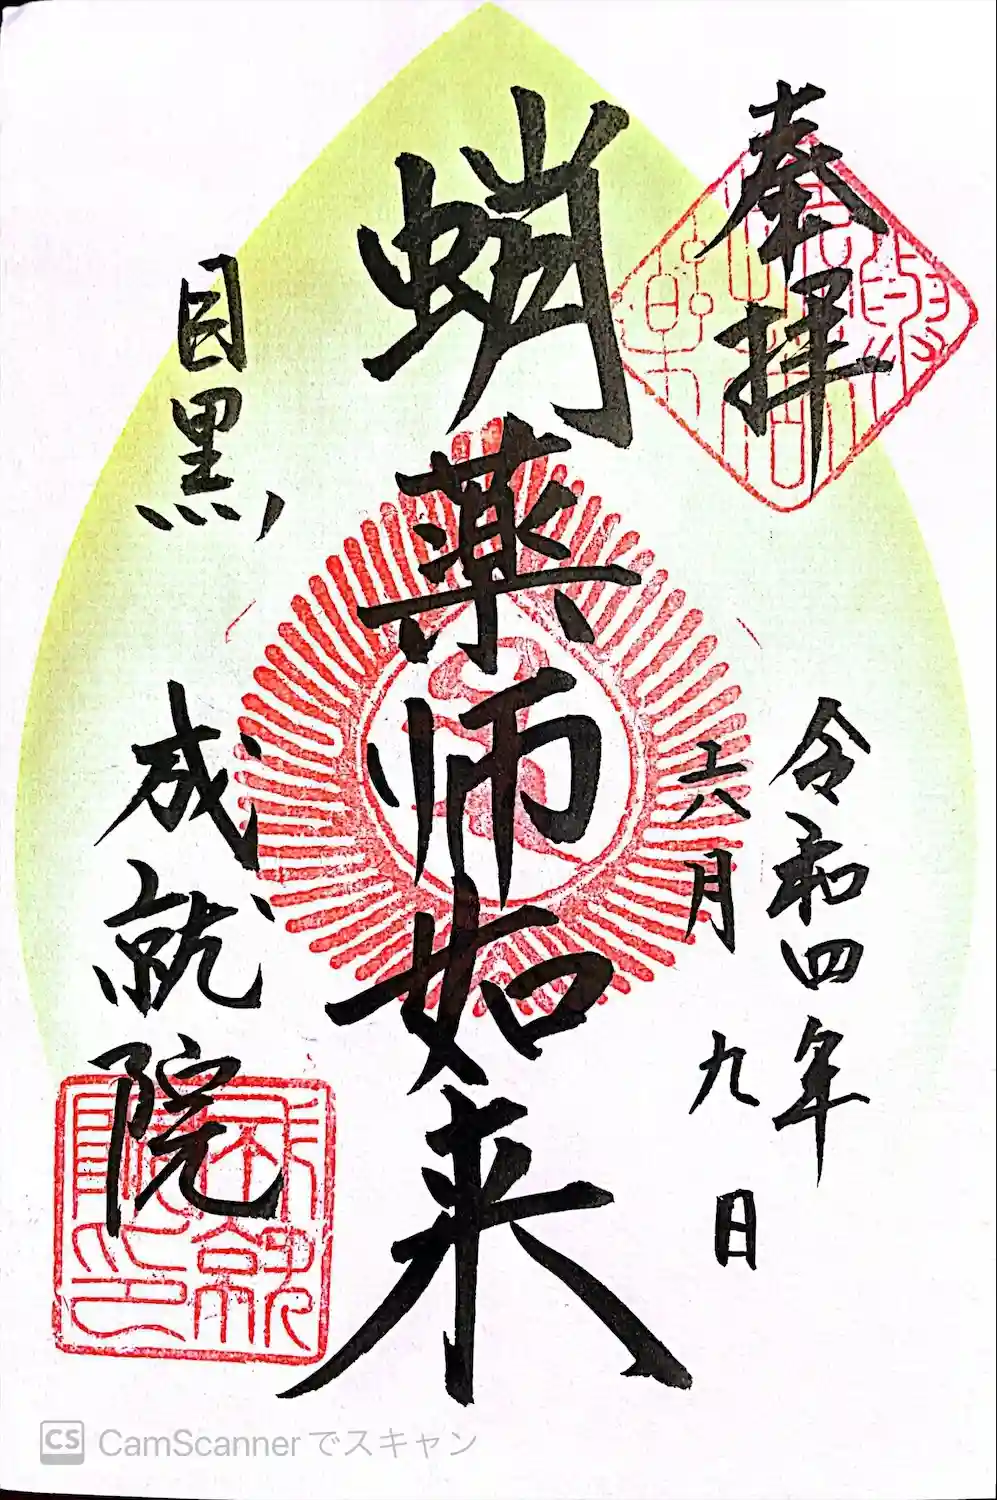 奉拝
令和四年
六月九日
蛸薬師如来
目黒
成就院
成就院印
CS CamScannerでスキャン